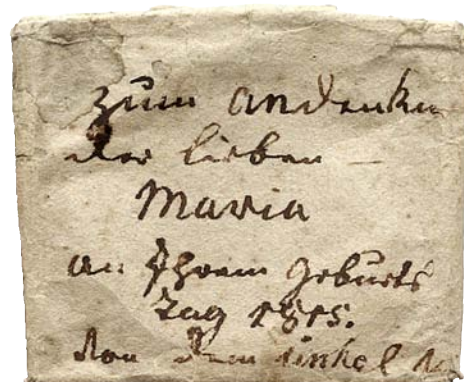 zum andenken
der lieben
Maria
an Ihrem Geburts
Tag 1815.
von dem